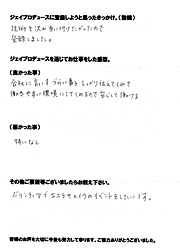 ジェイプロデュースに登録しようと思ったきっかけ。(動機)
技術を決め身に付けたかったので
登録しました。
ジェイプロデュースを通じてお仕事をした感想。
(良かった事)
会社に言いづらい事をしっかり伝えてくれて
働きやすい環境にしてくれるので安心して働けます
(悪かった事)
特になし
その他ご要望等ございましたらお教え下さい。
ボランティアでエステやメイクのイベントをしたいです。
皆様のお声を大切に今後も努力して参ります。ご協力ありがとうございました。